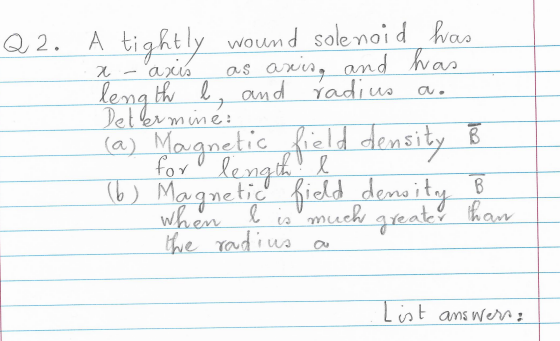 Q2. A tightly wound solenoid has
x-axis as axis, and has
length l, and radius a.
Determine:
(a) Magnetic field density B̅
for length l
(b) Magnetic field density B̅
when l is much greater than
the radius a
List answers: